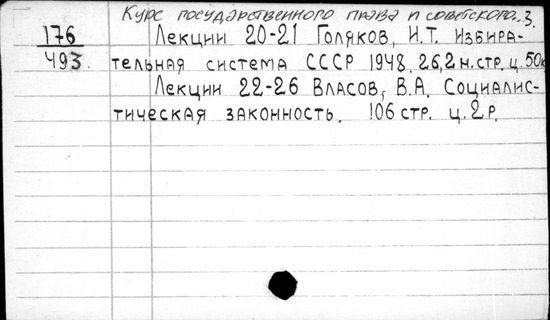 Курс государственного права и советского. 3.
176
Лекции 20-21 Голяков, И.Т. Избира-
493.
тельная система СССР 1948. 26,2 н.стр. ц. 50к
Лекции 22-26 Власов, В.А. Социалис-
тическая законность. 106 стр. ц. 2 р.